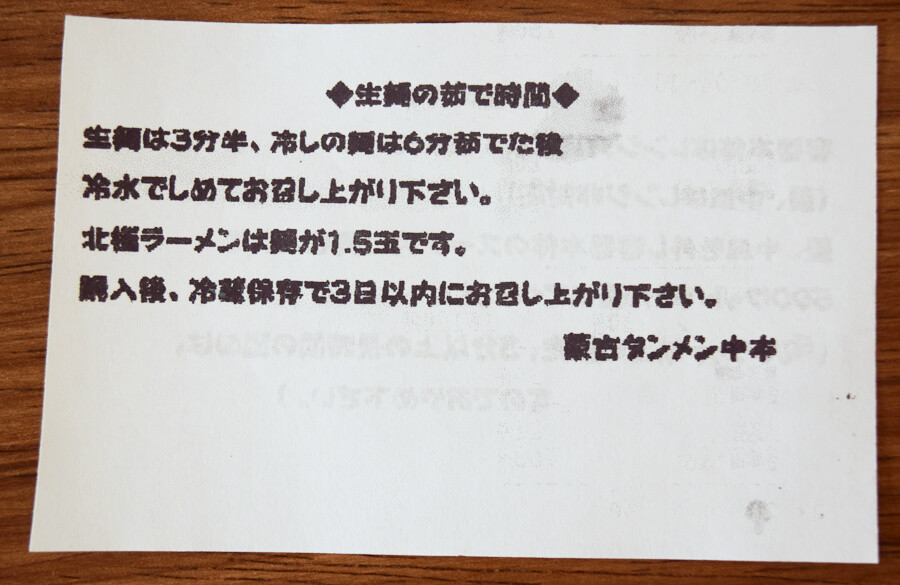 ◆生麺の茹で時間◆
生麺は3分半、冷しの麺は6分茹でた後
冷水でしめてお召し上がり下さい。
北極ラーメンは麺が1.5玉です。
購入後、冷蔵保存で3日以内にお召し上がり下さい。
蒙古タンメン中本